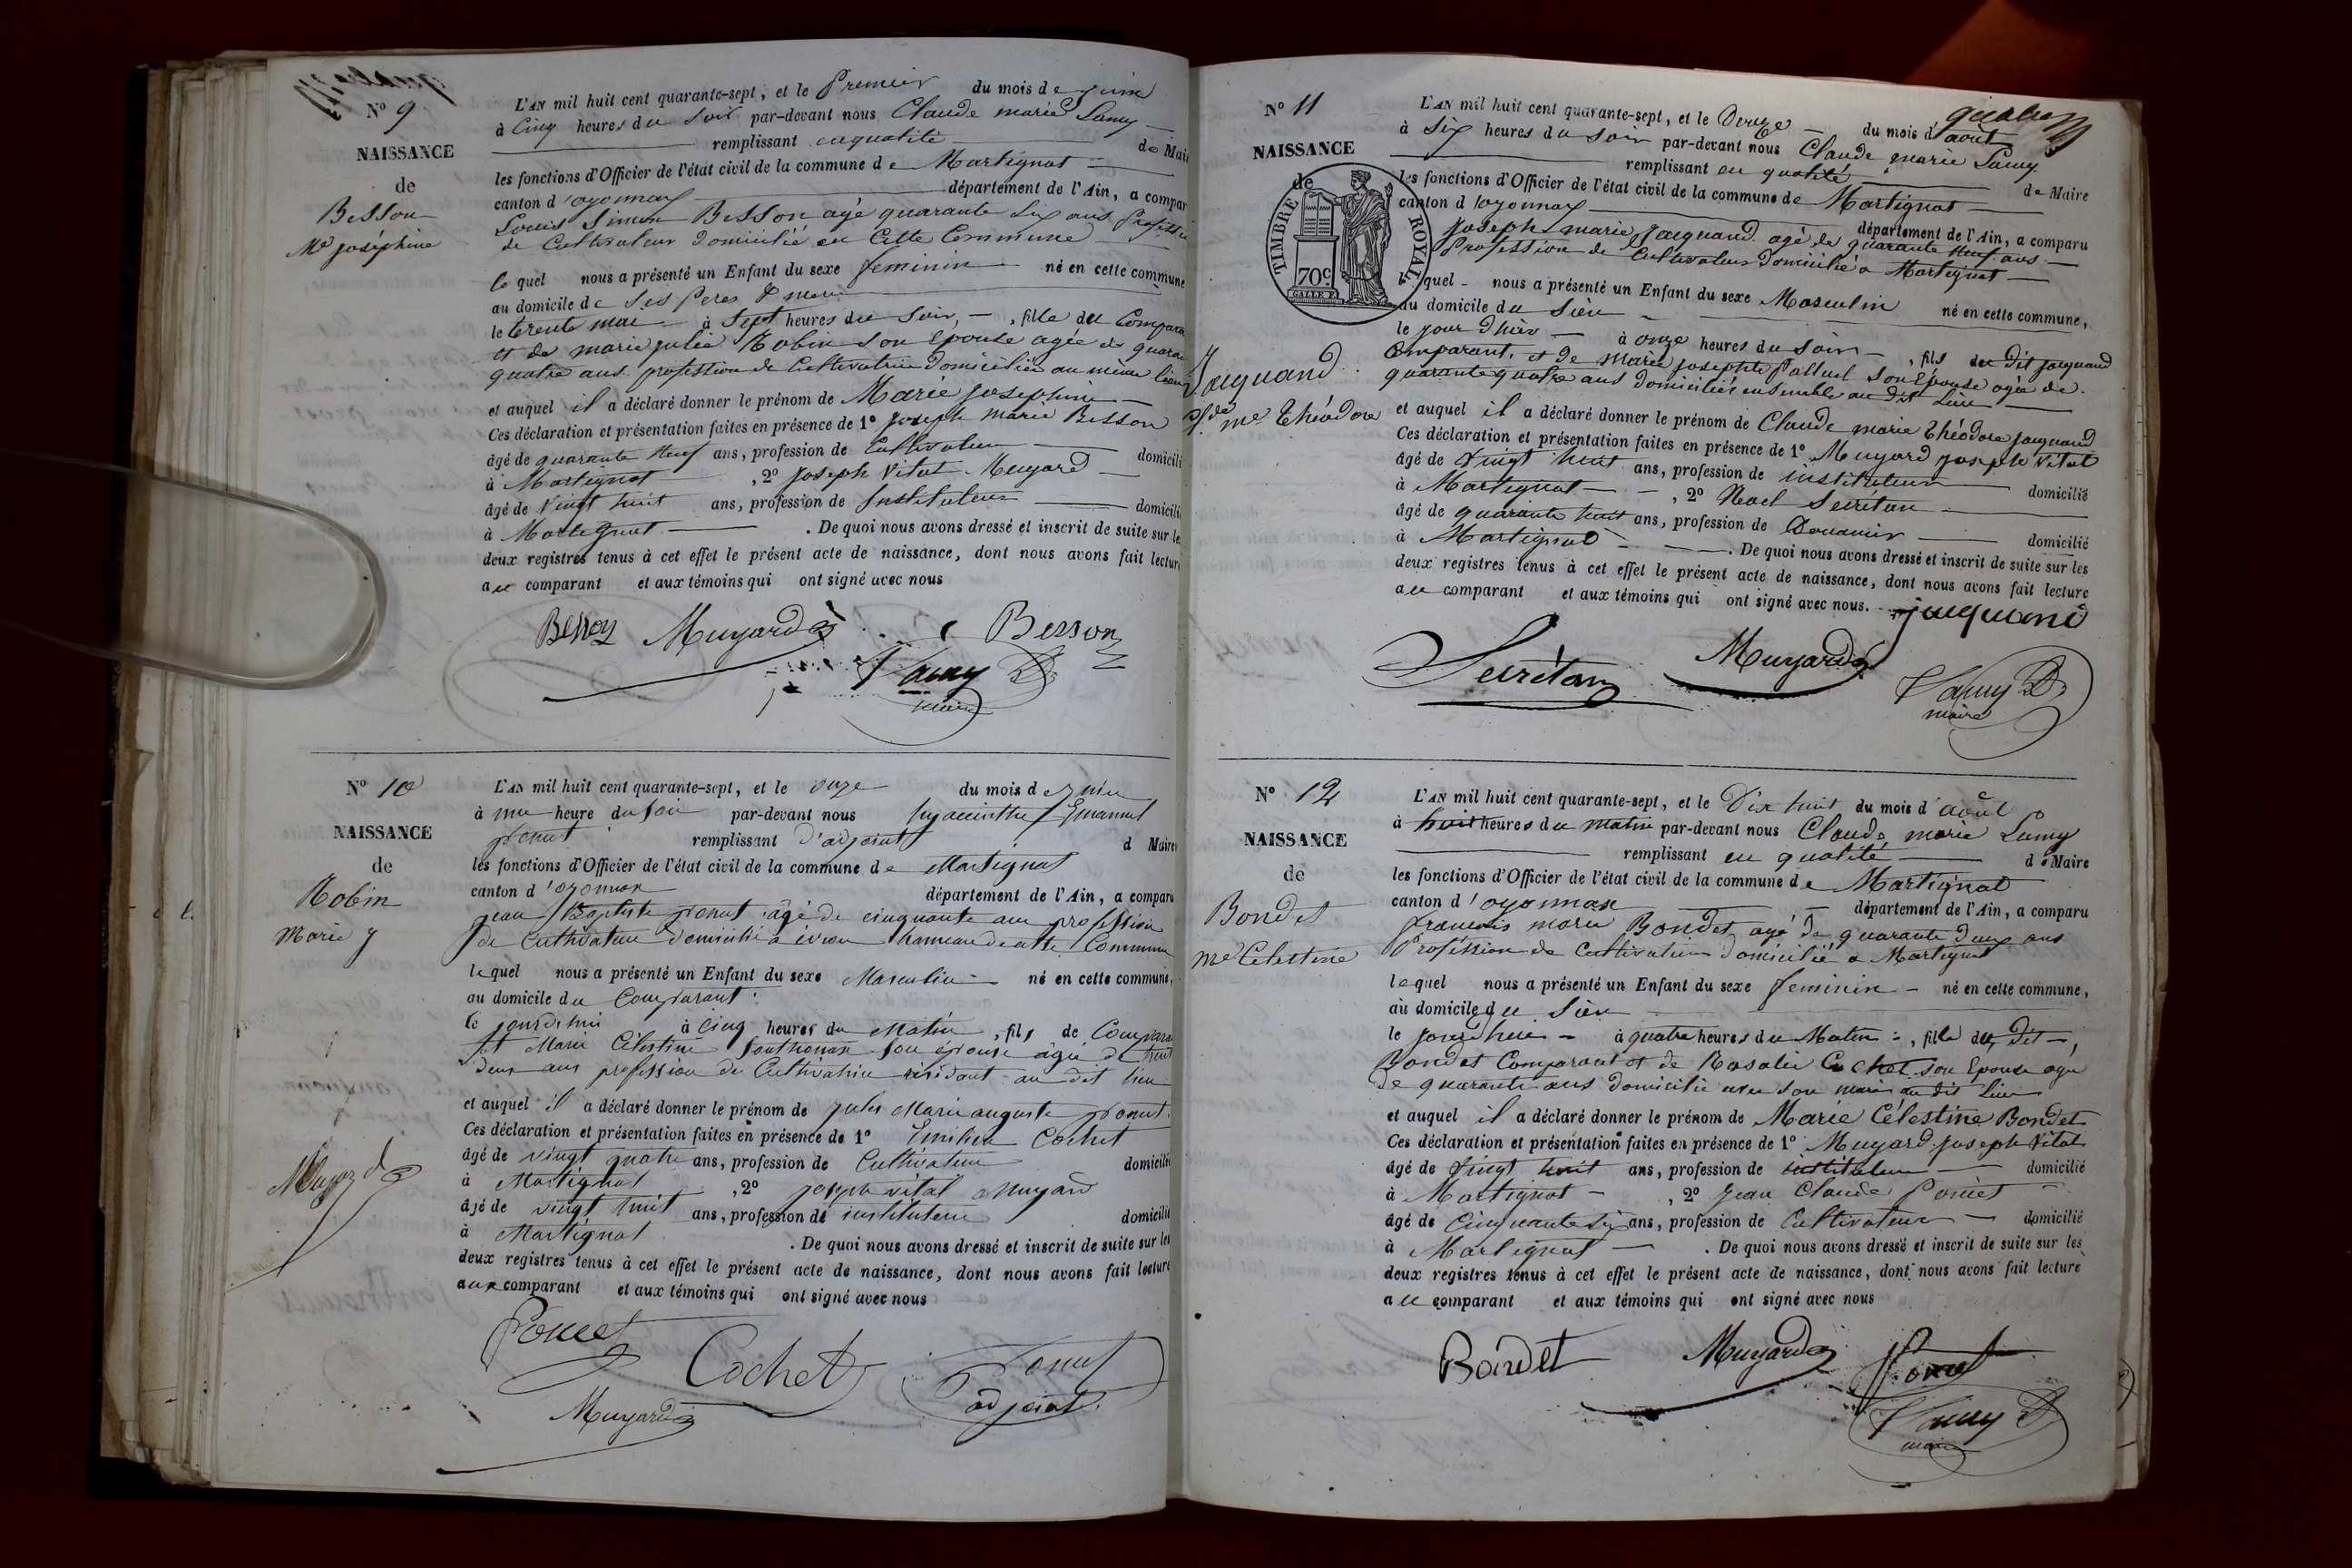 N° 9
NAISSANCE
de
Besson
Me joséphine
L'AN mil huit cent quarante-sept, et le Premier du mois de juin
à Cinq heures du Soir par-devant nous Claude marie Lamy
remplissant en qualité de Mai
les fonctions d'Officier de l'état civil de la commune de Martignat
canton d'oyonnax département de l'Ain, a compar
Louis Simon Besson agé quarante six ans Professi
de Cultivateur domicilié en Cette Commune
le quel nous a présenté un Enfant du sexe feminin né en cette commune
au domicile de Ses Peres & mere
le trente mai à Sept heures du Soir, fille du Compara
et de marie julie Robin Son Epouse agée de quara
quatre ans profession de Cultivatrice domiciliée au même lieu
et auquel il a déclaré donner le prénom de Marie josephine
Ces déclaration et présentation faites en présence de 1° joseph marie Besson
âgé de quarante Neuf ans, profession de Cultivateur domicili
à Martignat , 2° joseph Vital Muyard
âgé de Vingt huit ans, profession de Instituteur domicili
à Martignat . De quoi nous avons dressé et inscrit de suite sur le
deux registres tenus à cet effet le présent acte de naissance, dont nous avons fait lectur
au comparant et aux témoins qui ont signé avec nous
Besson Muyard Besson
Lamy
maire
N° 10
NAISSANCE
de
Robin
Marie j
Muyard
L'AN mil huit cent quarante-sept, et le onze du mois de juin
à une heure du soir par-devant nous hyacinthe Emanuel
ponct remplissant d'adjoint d Maire
les fonctions d'Officier de l'état civil de la commune de Martignat
canton d'oyonnax département de l'Ain, a compar
jean Baptiste ponct âgé de cinquante ans profession
de Cultivateur domicilié à évron hameau de cette Commune
lequel nous a présenté un Enfant du sexe Masculin né en cette commune,
au domicile du Comparant
le jourdhui à Cinq heures du Matin, fils de Compara
et Marie Célestine Southonnax son épouse âgée de trent
deux ans profession de Cultivatrice résidant au dit lieu
et auquel il a déclaré donner le prénom de jules Marie auguste ponct
Ces déclaration et présentation faites en présence de 1° Emilien Cochet
âgé de vingt quatre ans, profession de Cultivateur domicilié
à Martignat , 2° joseph vital Muyard
âgé de vingt huit ans, profession de instituteur domicilié
à Martignat . De quoi nous avons dressé et inscrit de suite sur les
deux registres tenus à cet effet le présent acte de naissance, dont nous avons fait lecture
aux comparant et aux témoins qui ont signé avec nous
Poncet
Cochet Poncet
adjoint
Muyard
N° 11
NAISSANCE
de
TIMBRE ROYAL
70c
Jacquand
Cde me théodore
L'AN mil huit cent quarante-sept, et le Douze du mois d'août
à Six heures du Soir par-devant nous Claude marie Lamy
remplissant en qualité de Maire
les fonctions d'Officier de l'état civil de la commune de Martignat
canton d'oyonnax département de l'Ain, a comparu
joseph marie jacquand agé de quarante neuf ans
Profession de Cultivateur domicilié a Martignat
le quel nous a présenté un Enfant du sexe Masculin né en cette commune,
au domicile du Sieu
le jour d'hier à onze heures du Soir, fils du Dit jacquand
Comparant, et de marie josephte Pallud son Epouse agée de
quarante quatre ans domiciliés ensemble au dit Lieu
et auquel il a déclaré donner le prénom de Claude marie théodore jacquand
Ces déclaration et présentation faites en présence de 1° Muyard joseph Vital
âgé de Vingt huit ans, profession de instituteur domicilié
à Martignat , 2° Noel Secrétan
âgé de quarante huit ans, profession de Douanier domicilié
à Martignat . De quoi nous avons dressé et inscrit de suite sur les
deux registres tenus à cet effet le présent acte de naissance, dont nous avons fait lecture
au comparant et aux témoins qui ont signé avec nous. jacquand
Secrétan Muyard Lamy
maire
N° 12
NAISSANCE
de
Bondet
me Celestine
L'AN mil huit cent quarante-sept, et le Dix huit du mois d'août
à huit heures du matin par-devant nous Claude marie Lamy
remplissant en qualité de Maire
les fonctions d'Officier de l'état civil de la commune de Martignat
canton d'oyonnax département de l'Ain, a comparu
françois marie Bondet agé de quarante deux ans
Profession de Cultivateur domicilié a Martignat
lequel nous a présenté un Enfant du sexe feminin né en cette commune,
au domicile du Sieu
le jourdhui à quatre heures du Matin, fille du Dit
Bondet Comparant et de Rosalie Cochet son Epouse agée
de quarante ans domiciliée avec son mari au dit Lieu
et auquel il a déclaré donner le prénom de Marie Célestine Bondet
Ces déclaration et présentation faites en présence de 1° Muyard joseph Vital
âgé de Vingt huit ans, profession de instituteur domicilié
à Martignat , 2° jean Claude Poncet
âgé de Cinquante six ans, profession de Cultivateur domicilié
à Martignat . De quoi nous avons dressé et inscrit de suite sur les
deux registres tenus à cet effet le présent acte de naissance, dont nous avons fait lecture
au comparant et aux témoins qui ont signé avec nous
Bondet Muyard Poncet
Lamy
maire